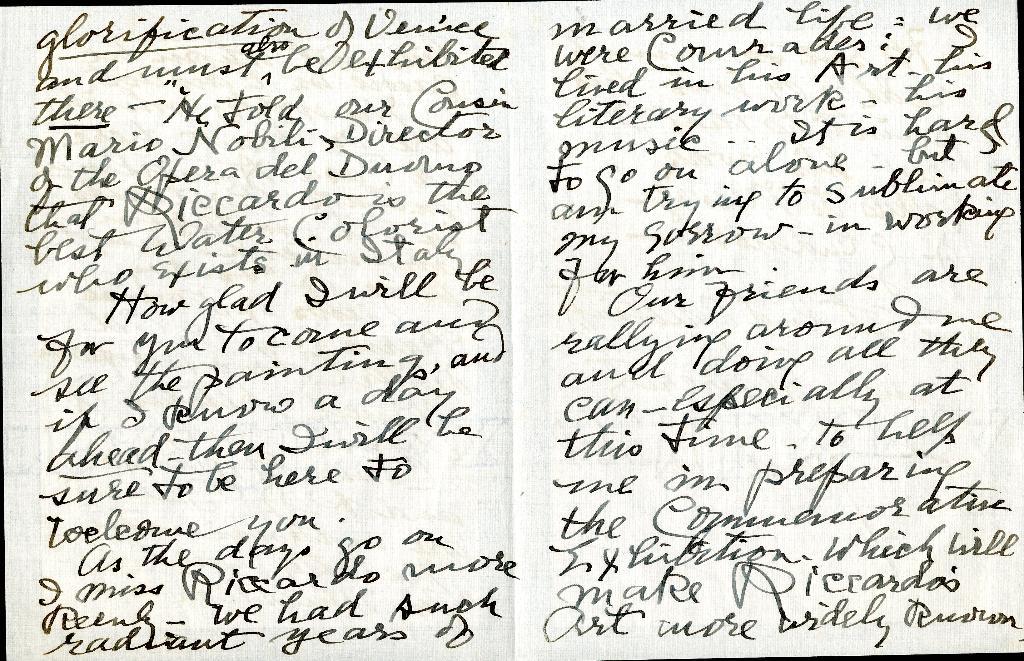 glorification of Venice
also
and must be exhibited
there — "He told our Cousin
Mario Nobili, Director
of the Opera del Duomo
that Riccardo is the
best Water Colorist
who exists in Italy
How glad I will be
for you to come and
see the paintings, and
if I know a day
ahead - then I will be
sure to be here to
welcome you.
As the days go on
I miss Riccardo more
keenly - we had such
radiant years of
married life = we
were Comrades; I
lived in his Art - his
literary work - his
music. It is hard
to go on alone - but I
am trying to sublimate
my sorrow - in working
for him.
Our friends are
rallying around me
and doing all they
can - especially at
this time - to help
me in preparing
the Commemorative
Exhibition. Which will
make Riccardo's
Art more widely known